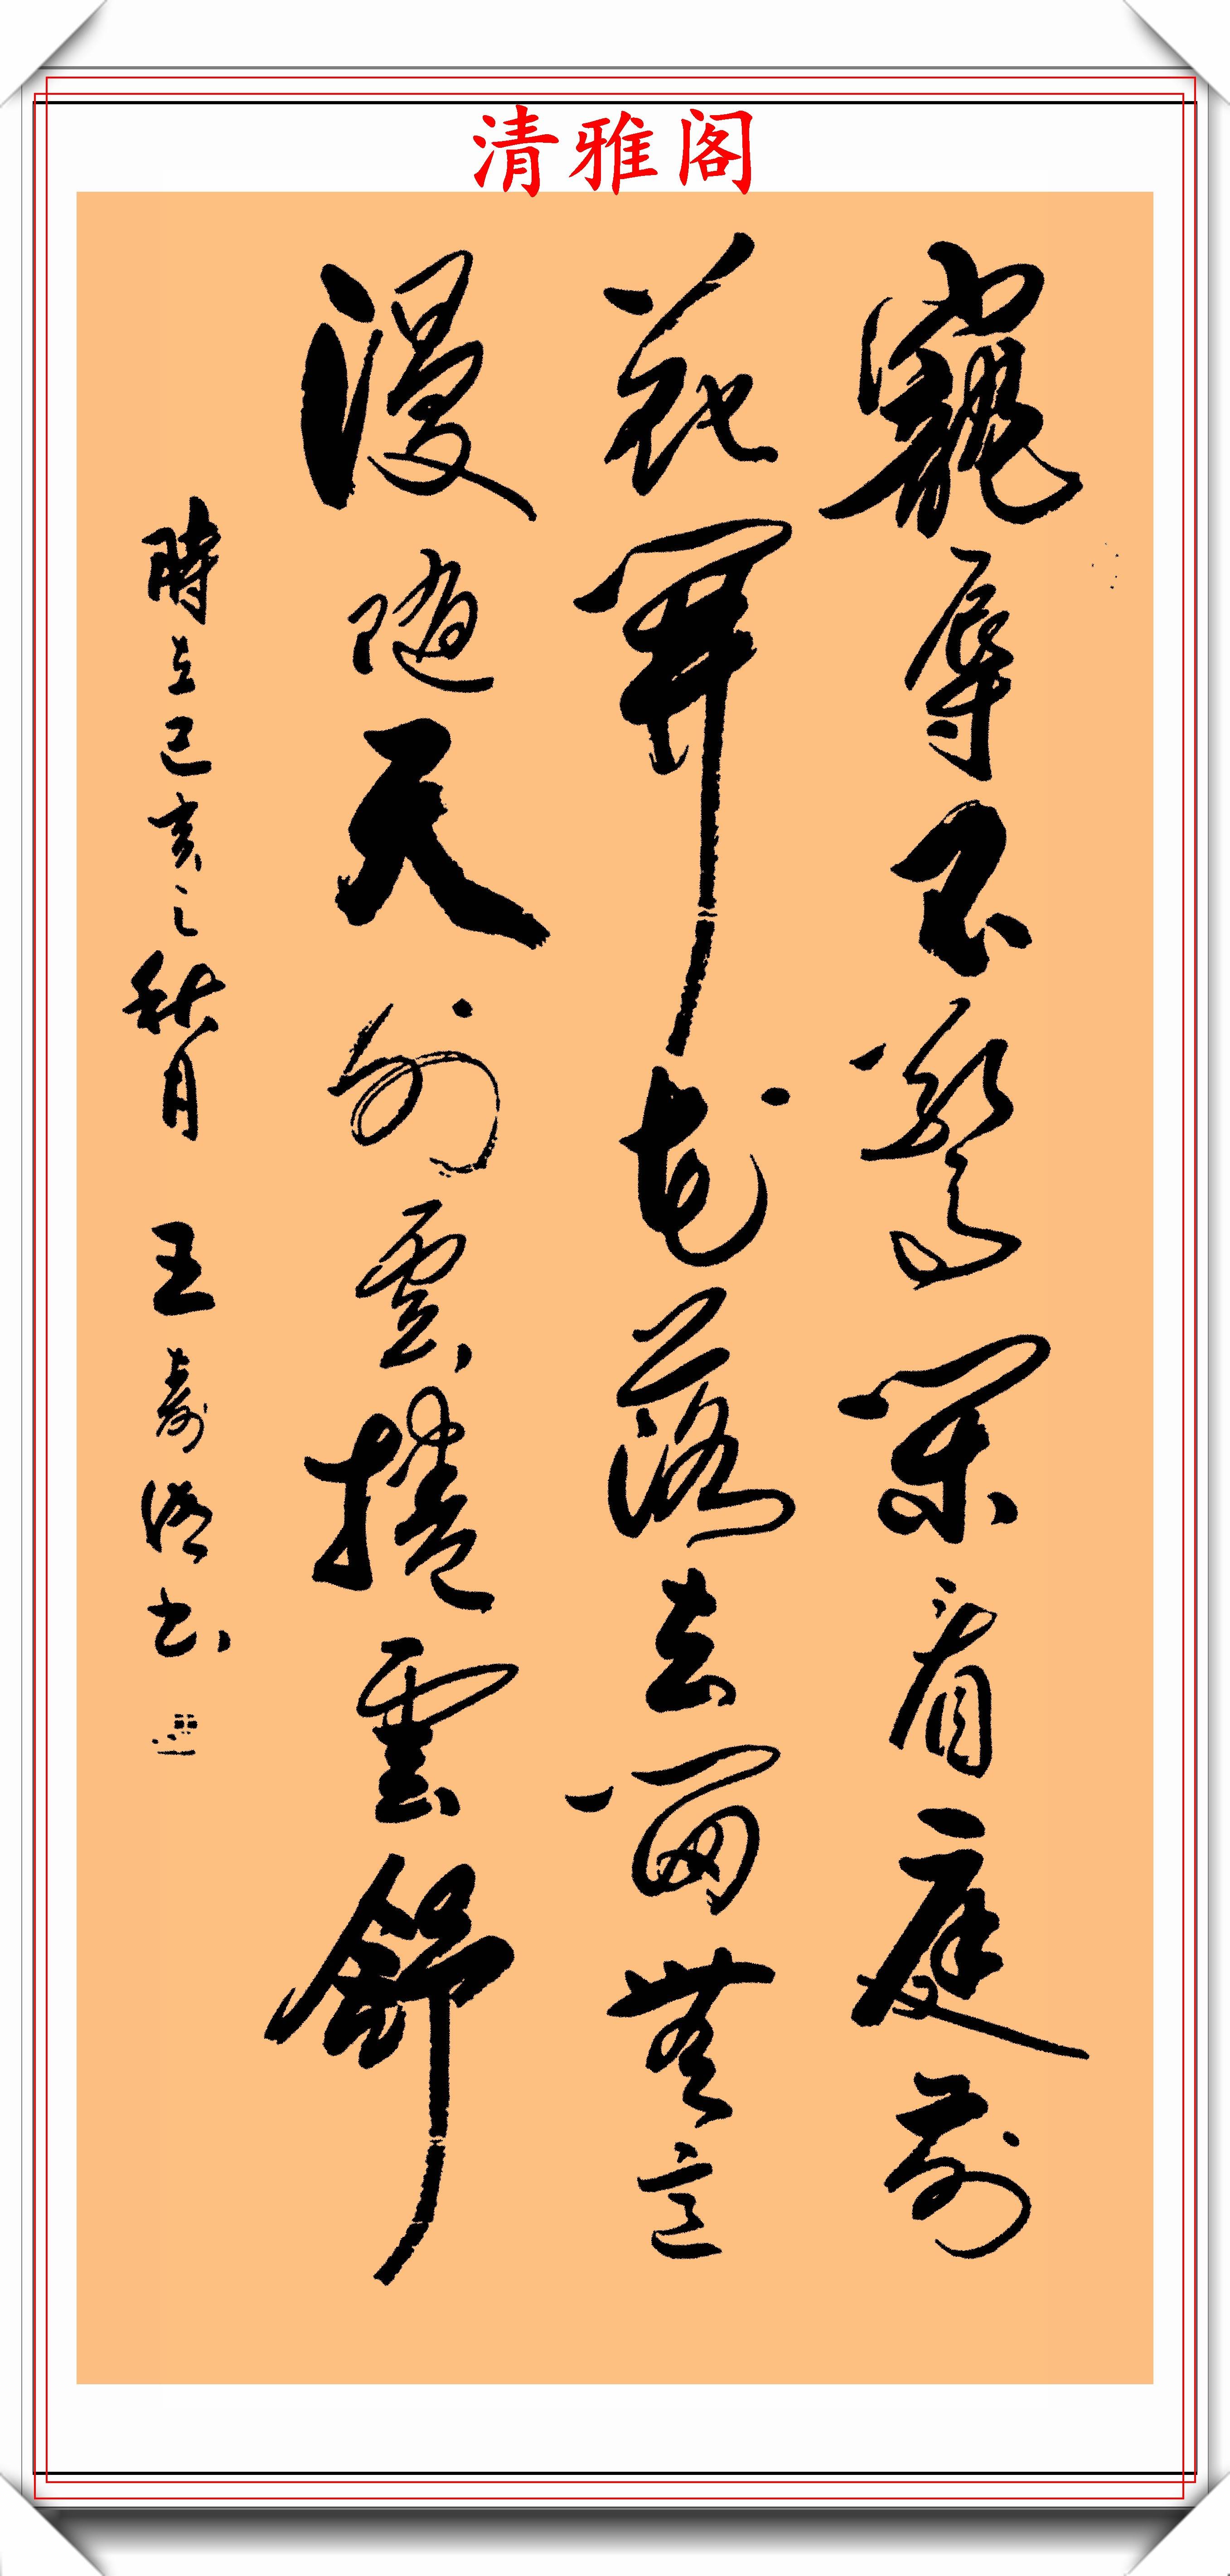 清雅阁
寵辱不驚閑看庭前
花開花落去留無意
漫随天外雲捲雲舒
時在己亥之秋月 王寿浩书